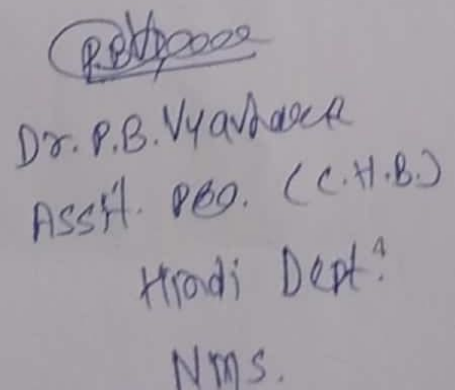 Dr. P.B. Vyavhare
Asstt. Pro. (C.H.B.)
Hindi Dept.
NMS.